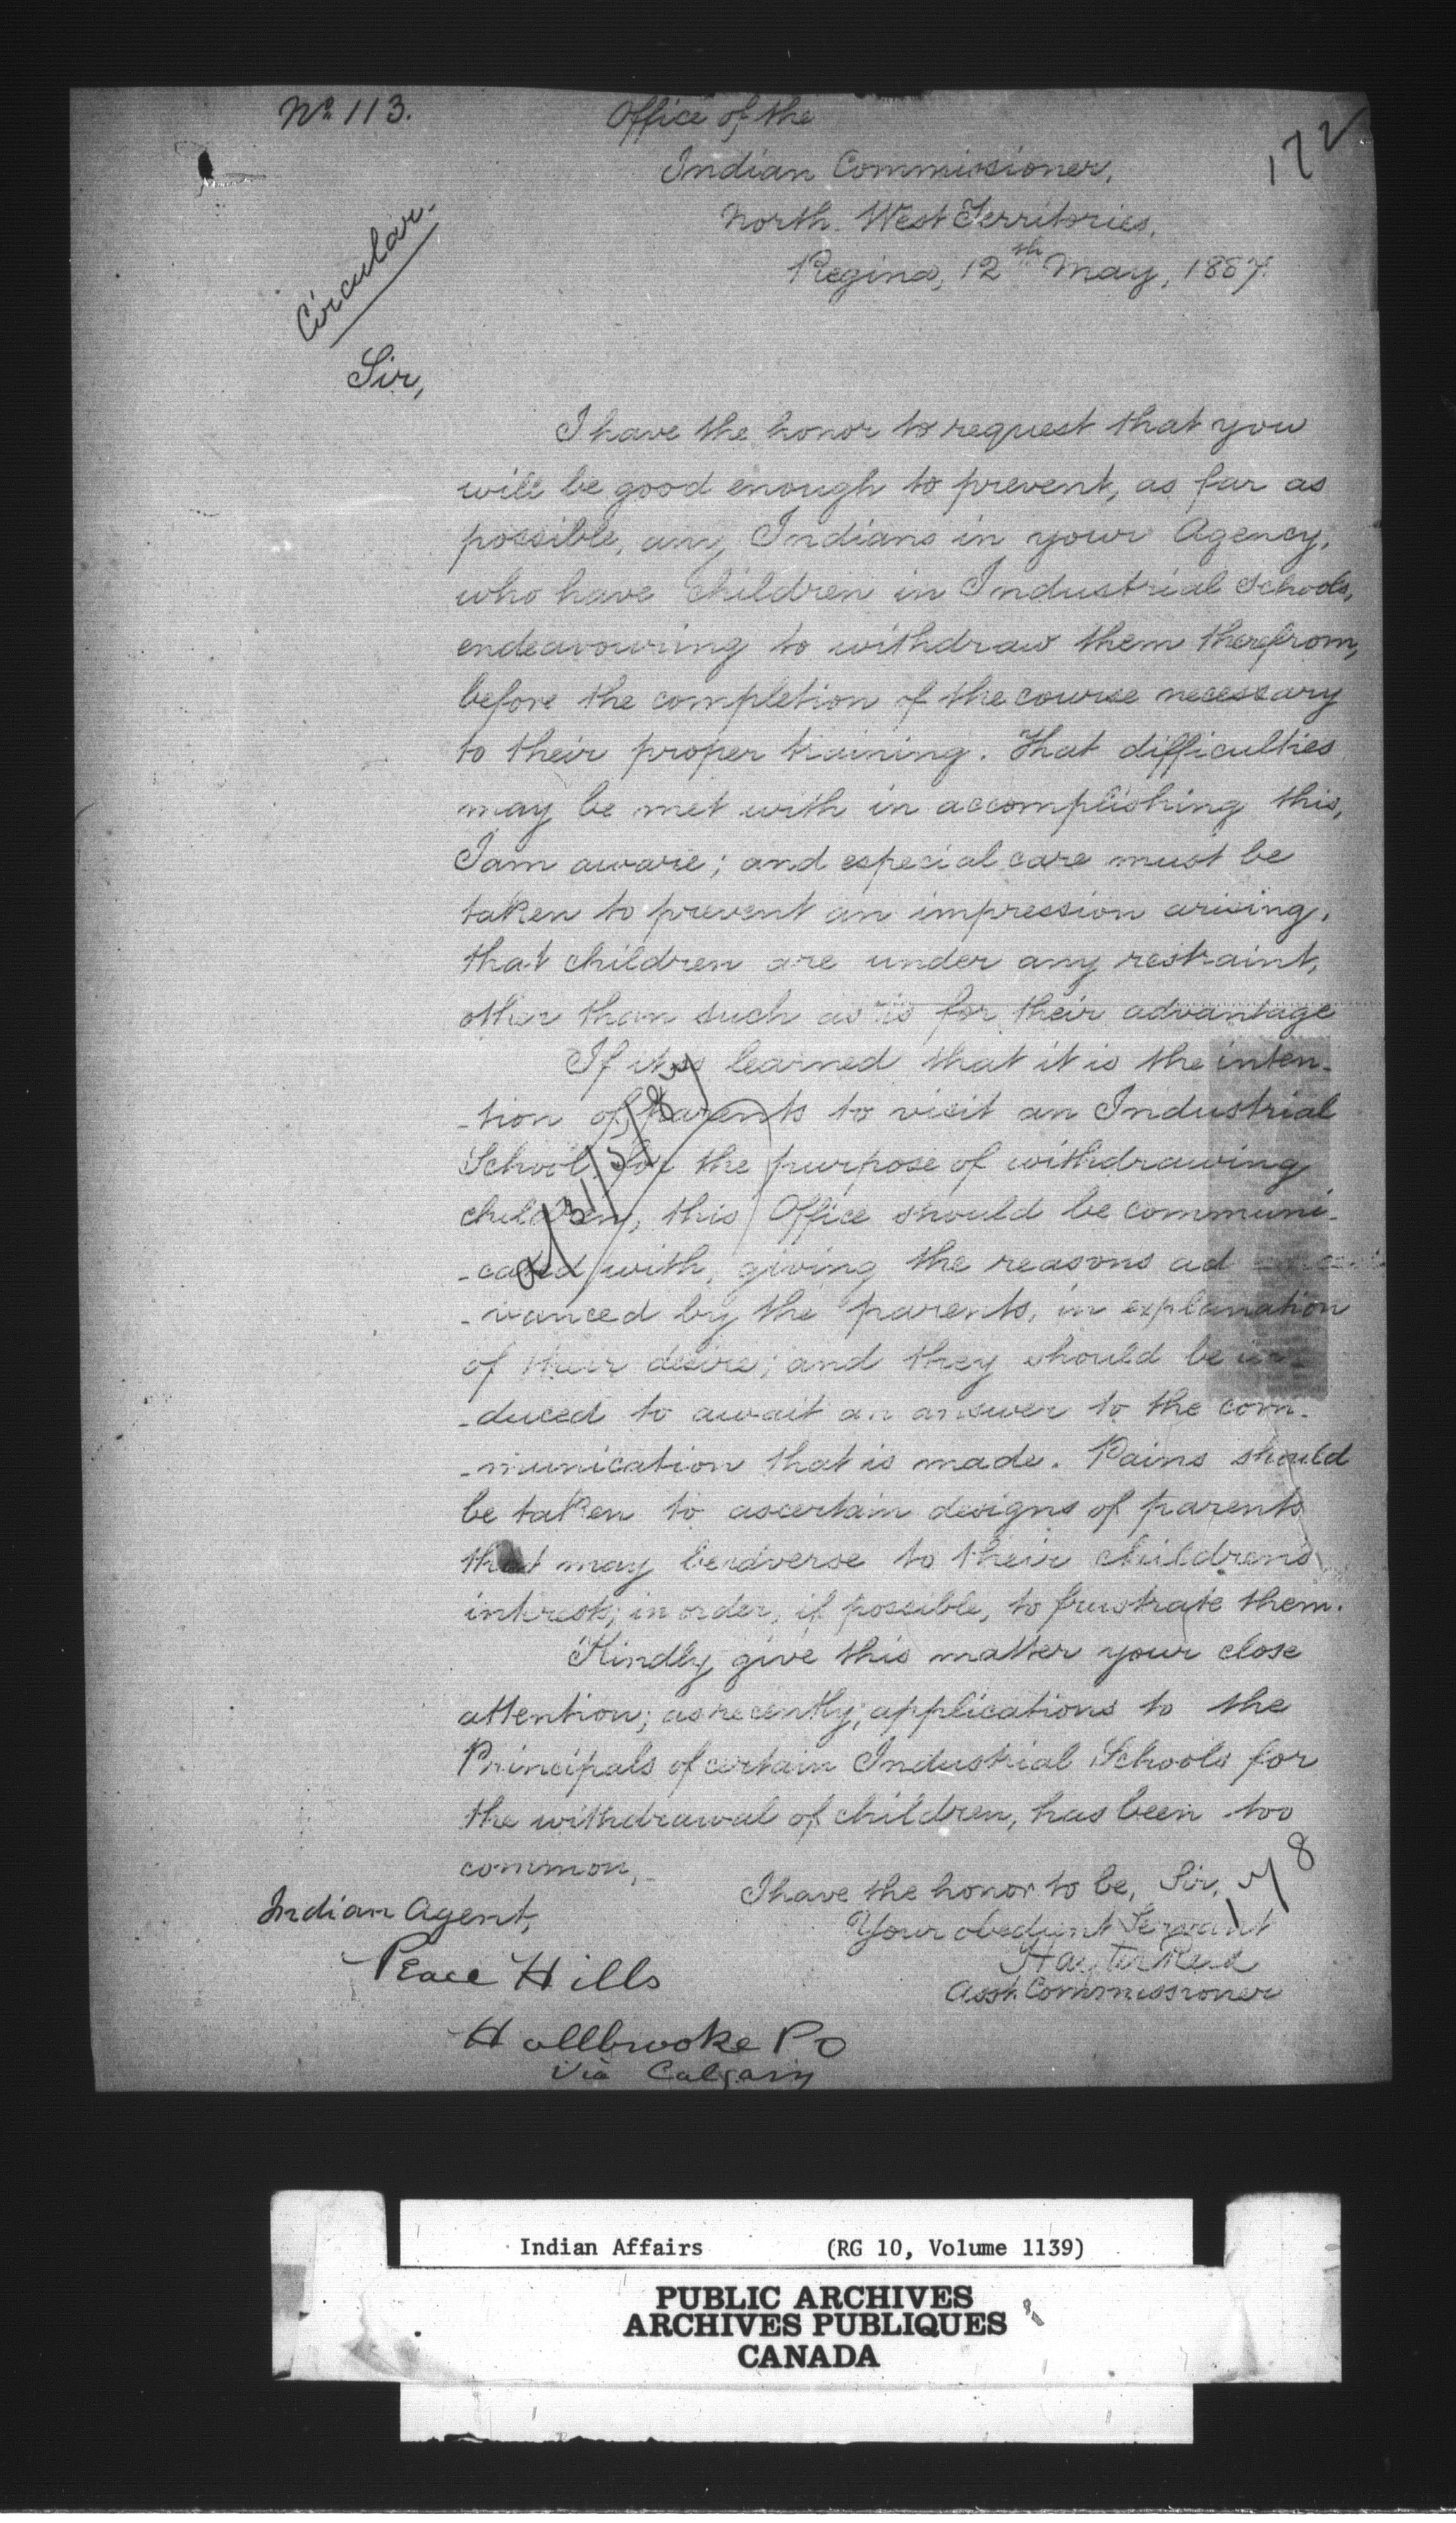 No. 113.
Office of the
172
Indian Commissioner,
North West Territories,
Regina, 12th May, 1887.
Circular.
Sir,
I have the honor to request that you
will be good enough to prevent, as far as
possible, any Indians in your Agency,
who have children in Industrial Schools,
endeavouring to withdraw them therefrom,
before the completion of the course necessary
to their proper training. That difficulties
may be met with in accomplishing this,
I am aware; and especial care must be
taken to prevent an impression arising,
that children are under any restraint,
other than such as is for their advantage
If it is learned that it is the inten-
-tion of parents to visit an Industrial
School for the purpose of withdrawing
children, this Office should be communi-
-cated with, giving the reasons ad
-vanced by the parents, in explanation
of their desire; and they should be in-
-duced to await an answer to the com-
-munication that is made. Pains should
be taken to ascertain designs of parents
that may be adverse to their children's
interests, in order, if possible, to frustrate them.
Kindly give this matter your close
attention; as recently, applications to the
Principals of certain Industrial Schools for
the withdrawal of children, has been too
common,
I have the honor to be, Sir,
Your obedient Servant
Hayter Reed
Asst. Commissioner
Indian Agent,
Peace Hills
Hallbrooke PO
Via Calgary
Indian Affairs (RG 10, Volume 1139)
PUBLIC ARCHIVES
ARCHIVES PUBLIQUES
CANADA